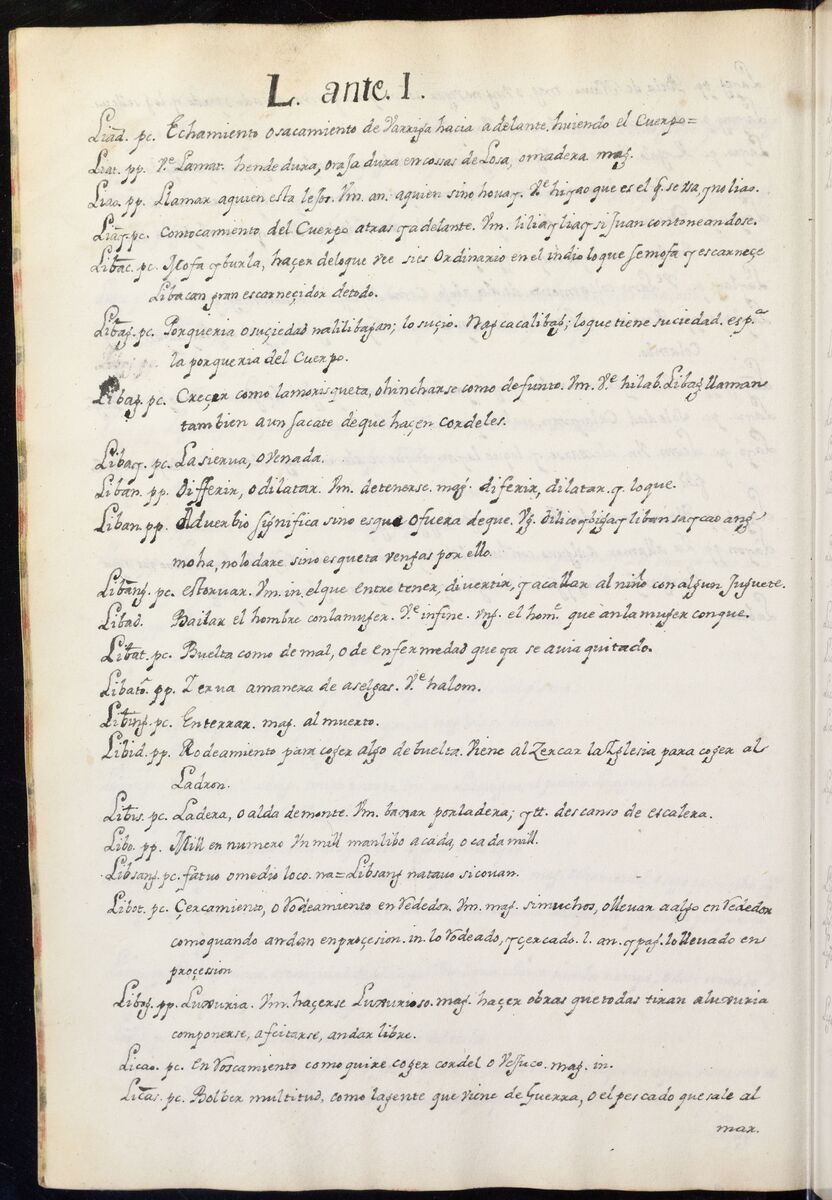 L. ante. I.
Liad. pc. Echamiento o sacamiento de varriga hacia adelante. huiendo el Cuerpo=
Liat. pp. Vᵉ Lamat. hendedura, o rasadura en cossas de Losa, o madera. mag.
Liao. pp. Llamar a quien esta lejos. Vm. an. aquien sino hovag. Vᵉ higao que es el q. se usa, y no liao.
Liag. pc. Contocamiento del Cuerpo atras y adelante. Vm. liliag liag si Juan contoneandose.
Libac. pc. Mofa y burla, haçer de lo que vee si es Ordinario en el indio lo que se mofa y escarneçe
Libacan gran escarneçidor de todo.
Libag. pc. Porqueria o suçiedad nalilibagan; lo suçio. Nagcacalibag; lo que tiene suciedad. espᵃ
la porqueria del Cuerpo.
Libag. pc. Creçer como la morisqueta, o hincharse como defunto. Vm. Vᵉ hilab. Libag llaman
tambien a un sacate de que haçen cordeles.
Libay. pc. La sierua, o Venada.
Liban. pp. Differir, o dilatar. Vm. detenerse. mag. diferir, dilatar. y. lo que.
Liban. pp. Adverbio significa sino es que o fuera de que. Vg. dilico ybigay liban sa ycao ang
moha, no lo dare sino es que ta vengas por ello.
Libang. pc. estorvar. Vm. in. el que entretener, divertir, y acallar al niño con algun Juguete.
Libad. Bailar el hombre con la muger. Vᵉ infine. Vng. el homᵉ que an la muger con que.
Libat. pc. Buelta como de mal, o de enfermedad que ya se avia quitado.
Libatoˢ. pp. Zerva a manera de aselgas. Vᵉ halom.
Libing. pc. Enterrar. mag. al muerto.
Libid. pp. Rodeamiento para coger algo de buelta. Viene al Zercar la Iglesia para coger al
Ladron.
Libis. pc. Ladera, o alda de monte. Vm. baxar por ladera; ytt. descanso de escalera.
Libo. pp. Mill en numero Vn mill manlibo a cada, o cada mill.
Libsang. pc. fatuo o medio loco. na= Libsang natavo si covan.
Libot. pc. Çercamiento, o Rodeamiento en Rededor. Vm. mag. si muchos, o llevar a algo en Rededor
como quando andan en proçesion. in. lo Rodeado, y çercado. l. an. y pag. lo llevado en
proçession
Libog. pp. Luxuria. Vm. haçerse Luxurioso. mag. haçer obras que todas tiran a luxuria
componerse, afeitarse, andar libre.
Licao. pc. en Roscamiento como quire coger cordel o Vejuco. mag. in.
Licas. pc. Bolber multitud, como la gente que viene de Guerra, o el pescado que sale al
mar.